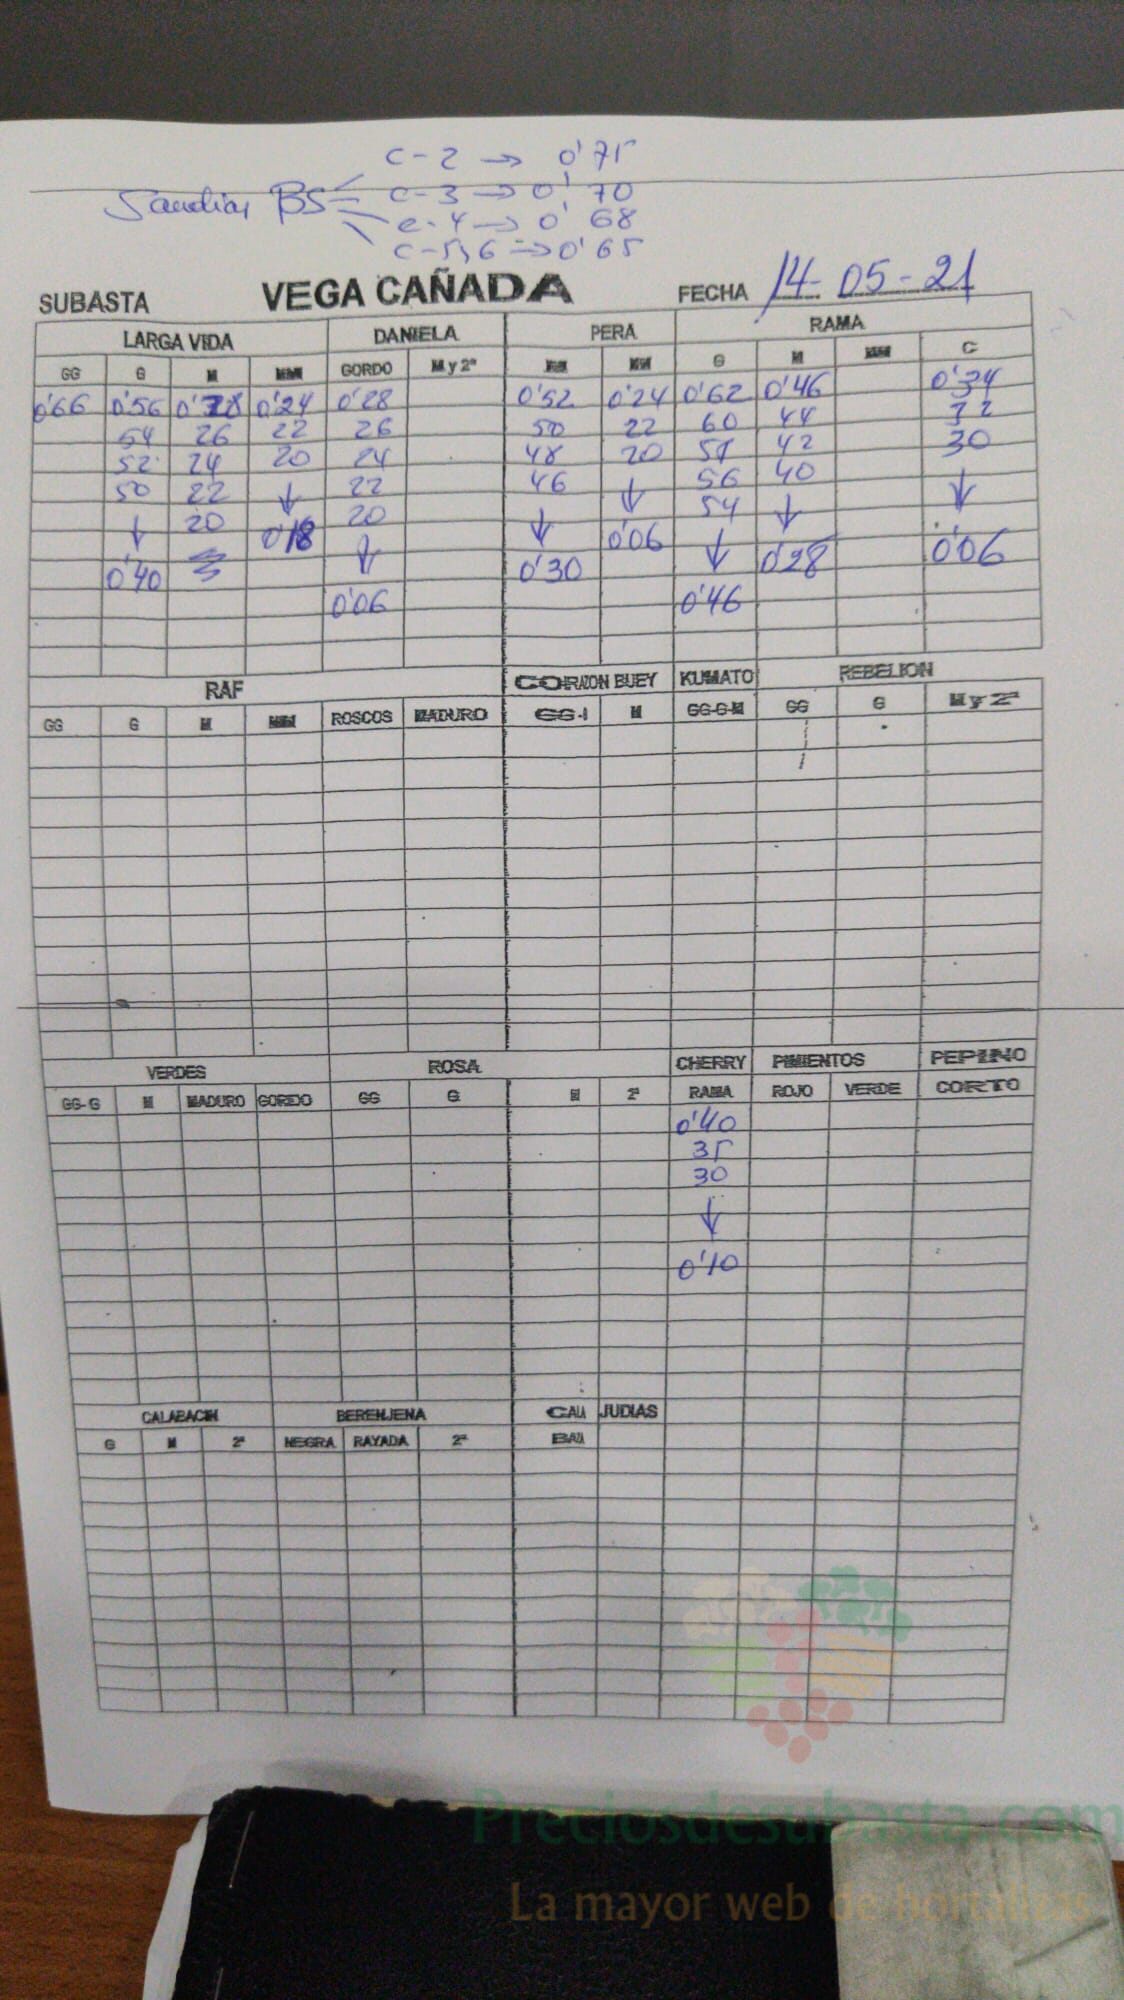 c-2 → 0'75
Sandias BS c-3 → 0'70
c-4 → 0'68
c-5,6 → 0'65
SUBASTA VEGA CAÑADA FECHA 14-05-21
LARGA VIDA DANIELA PERA RAMA
GG G M MM GORDO M y 2ª MM G M MM C
0'66 0'56 0'28 0'24 0'28 0'52 0'24 0'62 0'46 0'34
54 26 22 26 50 22 60 44 32
52 24 20 24 48 20 58 42 30
50 22 ↓ 22 46 ↓ 56 40 ↓
↓ 20 0'18 20 ↓ 0'06 54 ↓ 0'06
0'40 ↓ 0'30 ↓ 0'28
0'06 0'46
RAF CORAZON BUEY KUMATO REBELION
GG G M MM ROSCOS MADURO GG-I M GG-G-M GG G M y 2ª
VERDES ROSA CHERRY PIMIENTOS PEPINO
GG-G M MADURO GORDO GG G M 2ª RAMA ROJO VERDE CORTO
0'40
35
30
↓
0'10
CALABACIN BERENJENA CALA JUDIAS
G M 2ª NEGRA RAYADA 2ª BAZA
Preciosdesubasta.com
La mayor web de hortalizas